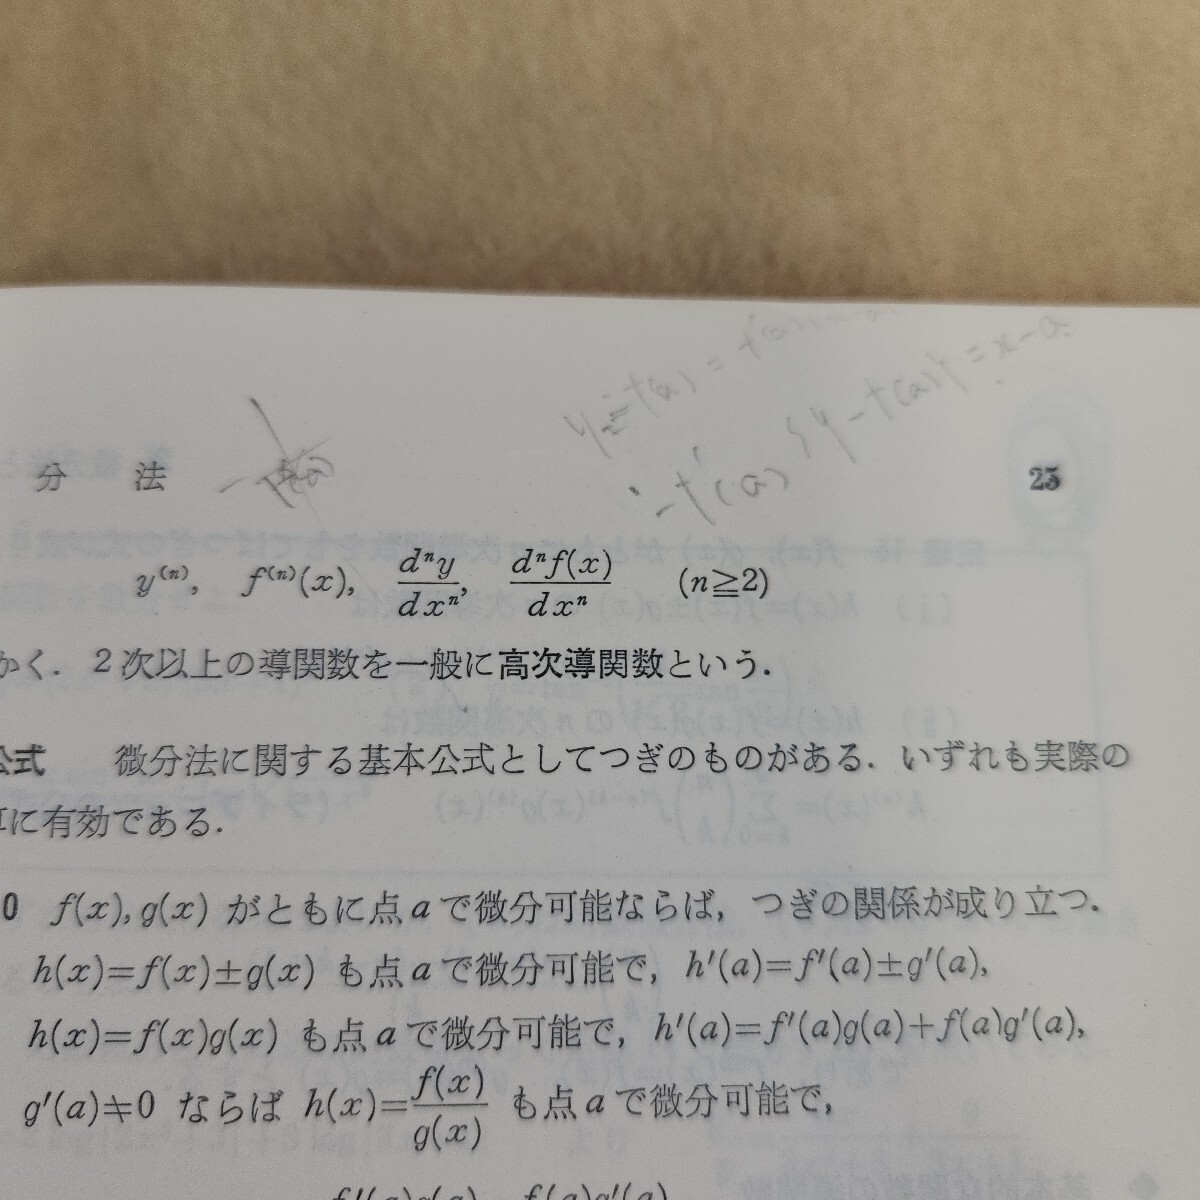 分 法 25
y⁽ⁿ⁾, f⁽ⁿ⁾(x), dⁿy/dxⁿ, dⁿf(x)/dxⁿ (n≧2)
かく. 2次以上の導関数を一般に高次導関数という.
公式 微分法に関する基本公式としてつぎのものがある. いずれも実際の
に有効である.
0 f(x), g(x) がともに点 a で微分可能ならば, つぎの関係が成り立つ.
h(x)=f(x)±g(x) も点 a で微分可能で, h′(a)=f′(a)±g′(a),
h(x)=f(x)g(x) も点 a で微分可能で, h′(a)=f′(a)g(a)+f(a)g′(a),
g′(a)≠0 ならば h(x)=f(x)/g(x) も点 a で微分可能で,
f′(a)g(a)−f(a)g′(a)